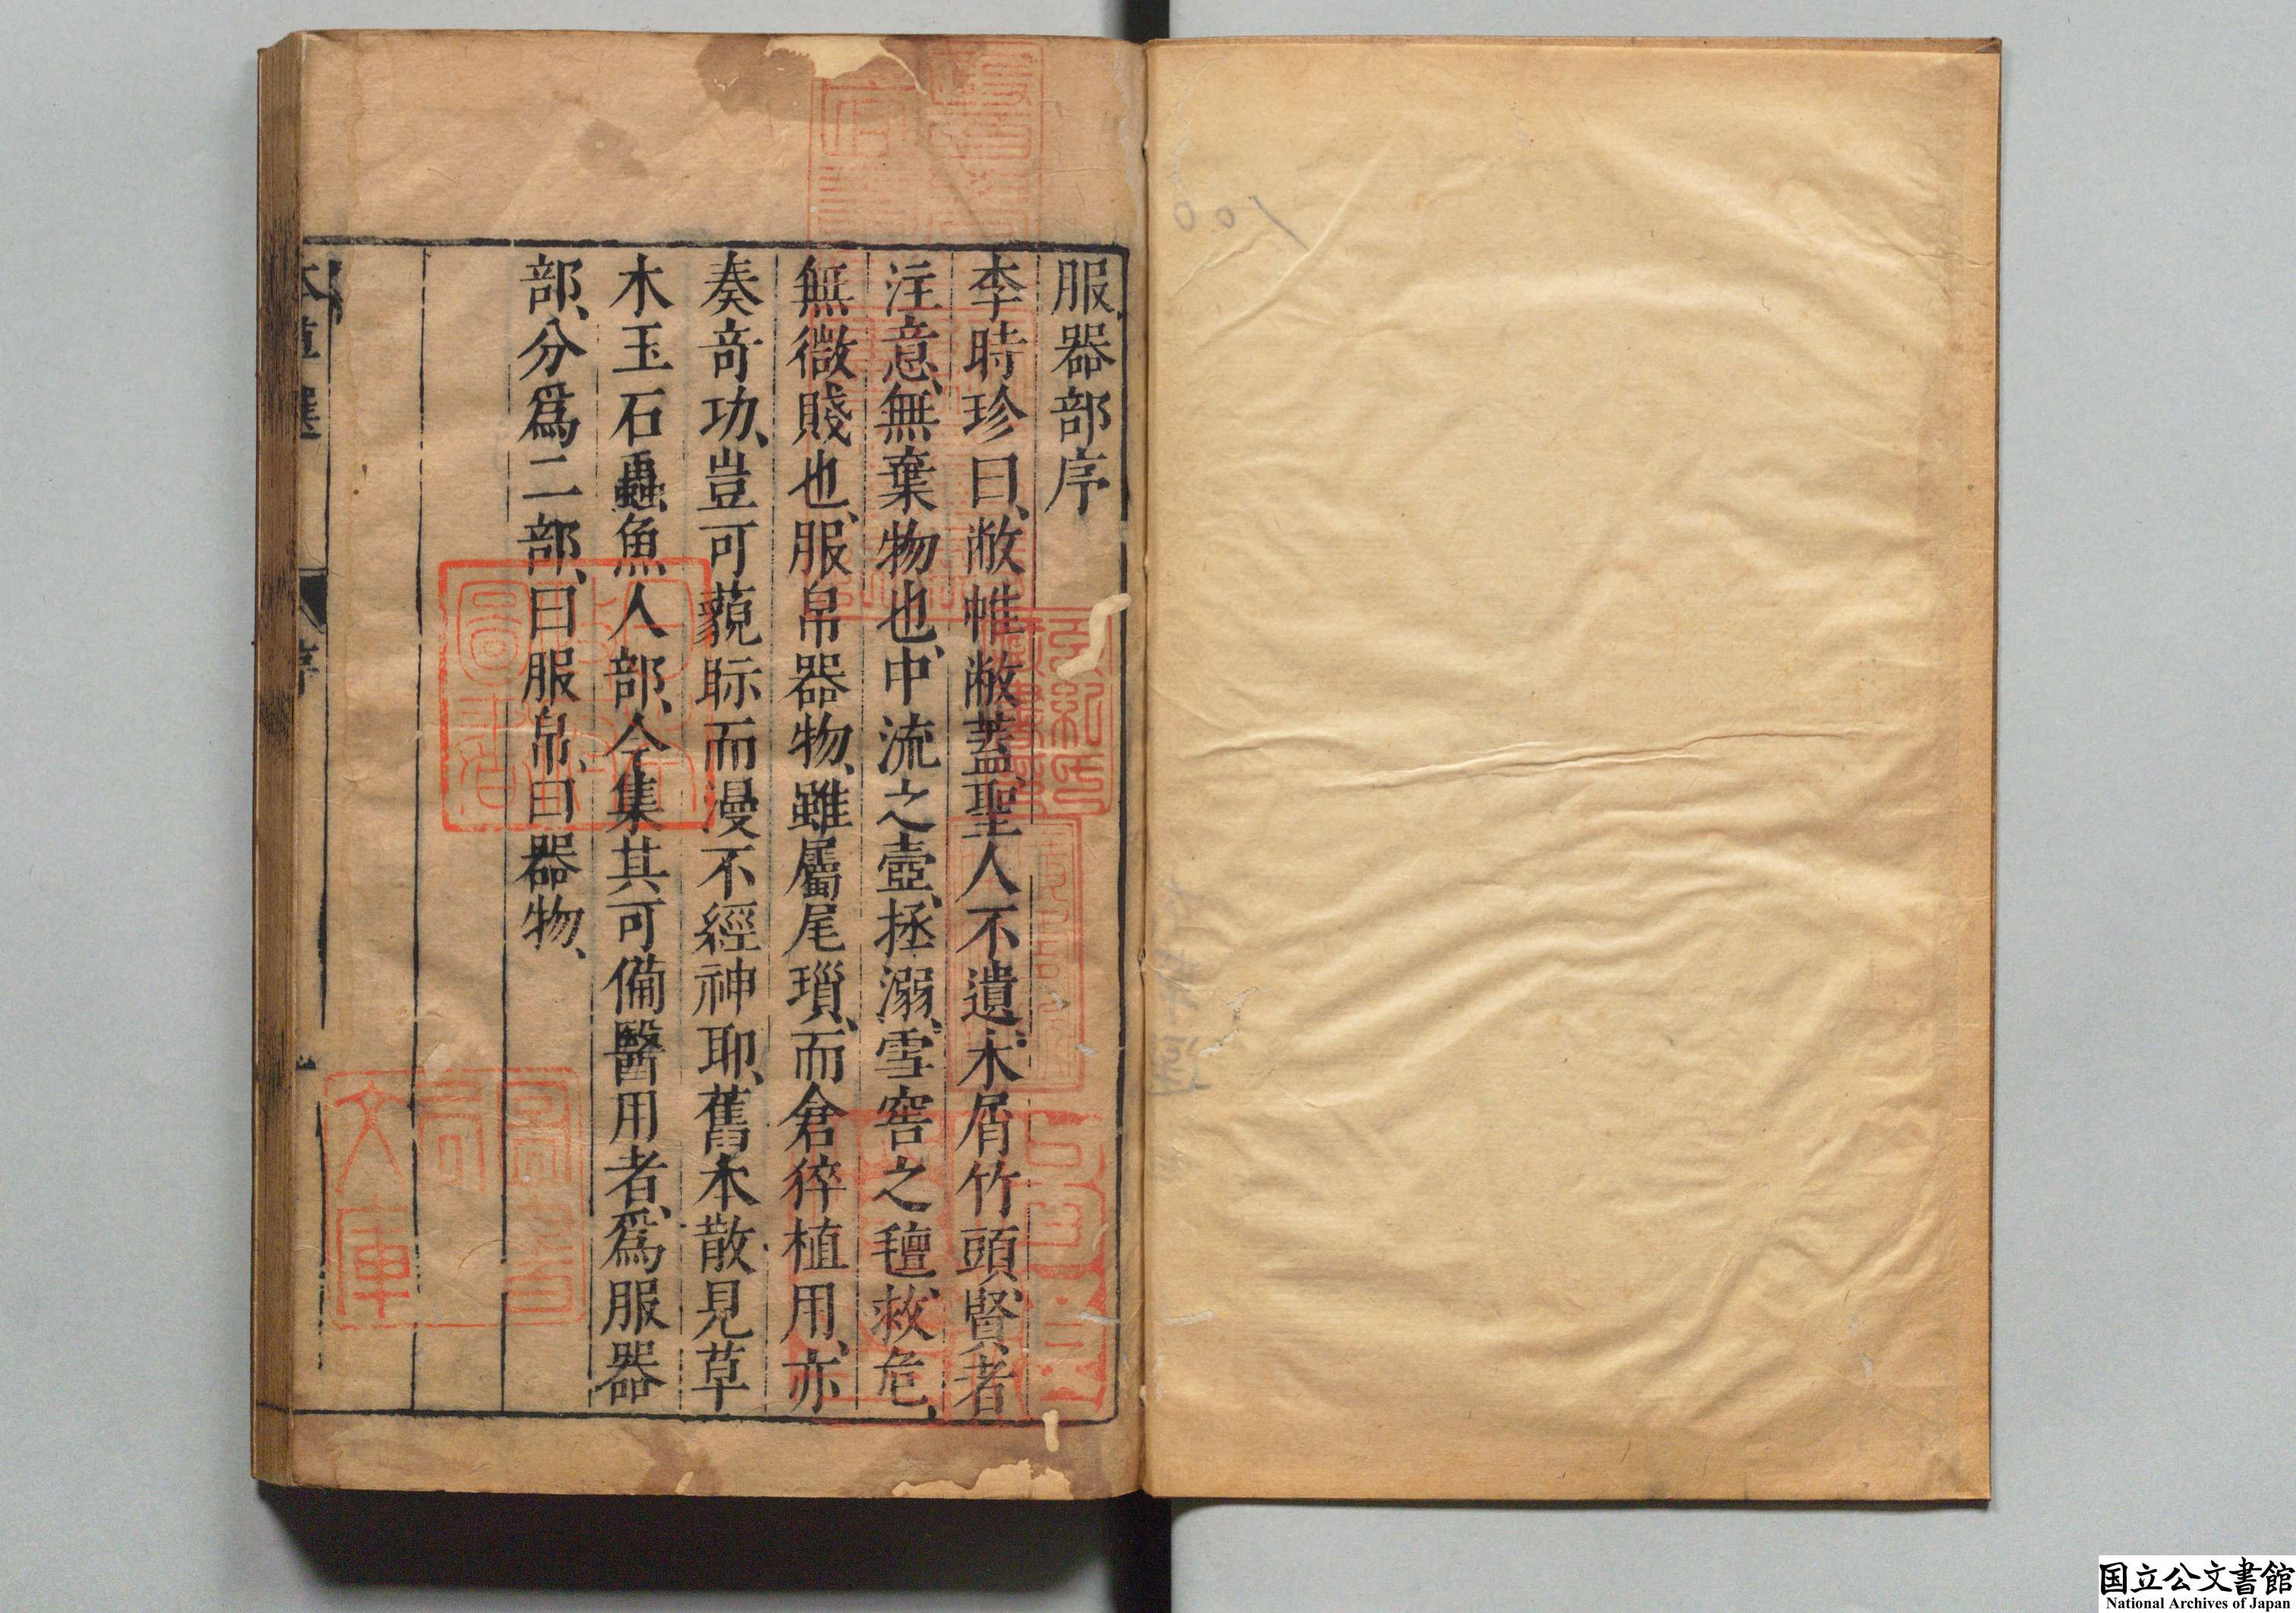 服器部序
李時珍曰、敝帷敝蓋、聖人不遺、木屑竹頭、賢者
注意、無棄物也、中流之壺、拯溺、雪窖之氊、救危、
無微賤也、服帛器物、雖屬尾瑣、而倉猝植用、亦
奏奇功、豈可藐眎而漫不經神耶、舊本散見草
木玉石蟲魚人部、今集其可備醫用者、爲服器
部、分爲二部、曰服帛、曰器物、
本草選
序
文庫
国立公文書館
National Archives of Japan